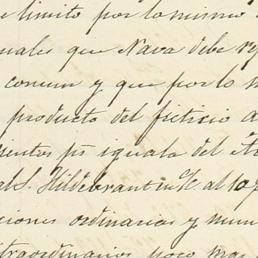 limito por lo mismo
uales que Nava debe
comun y que por lo
producto del ficticio
iguala del
al S. Hildebrant
ciones ordinarias y
traordinarios poco mas